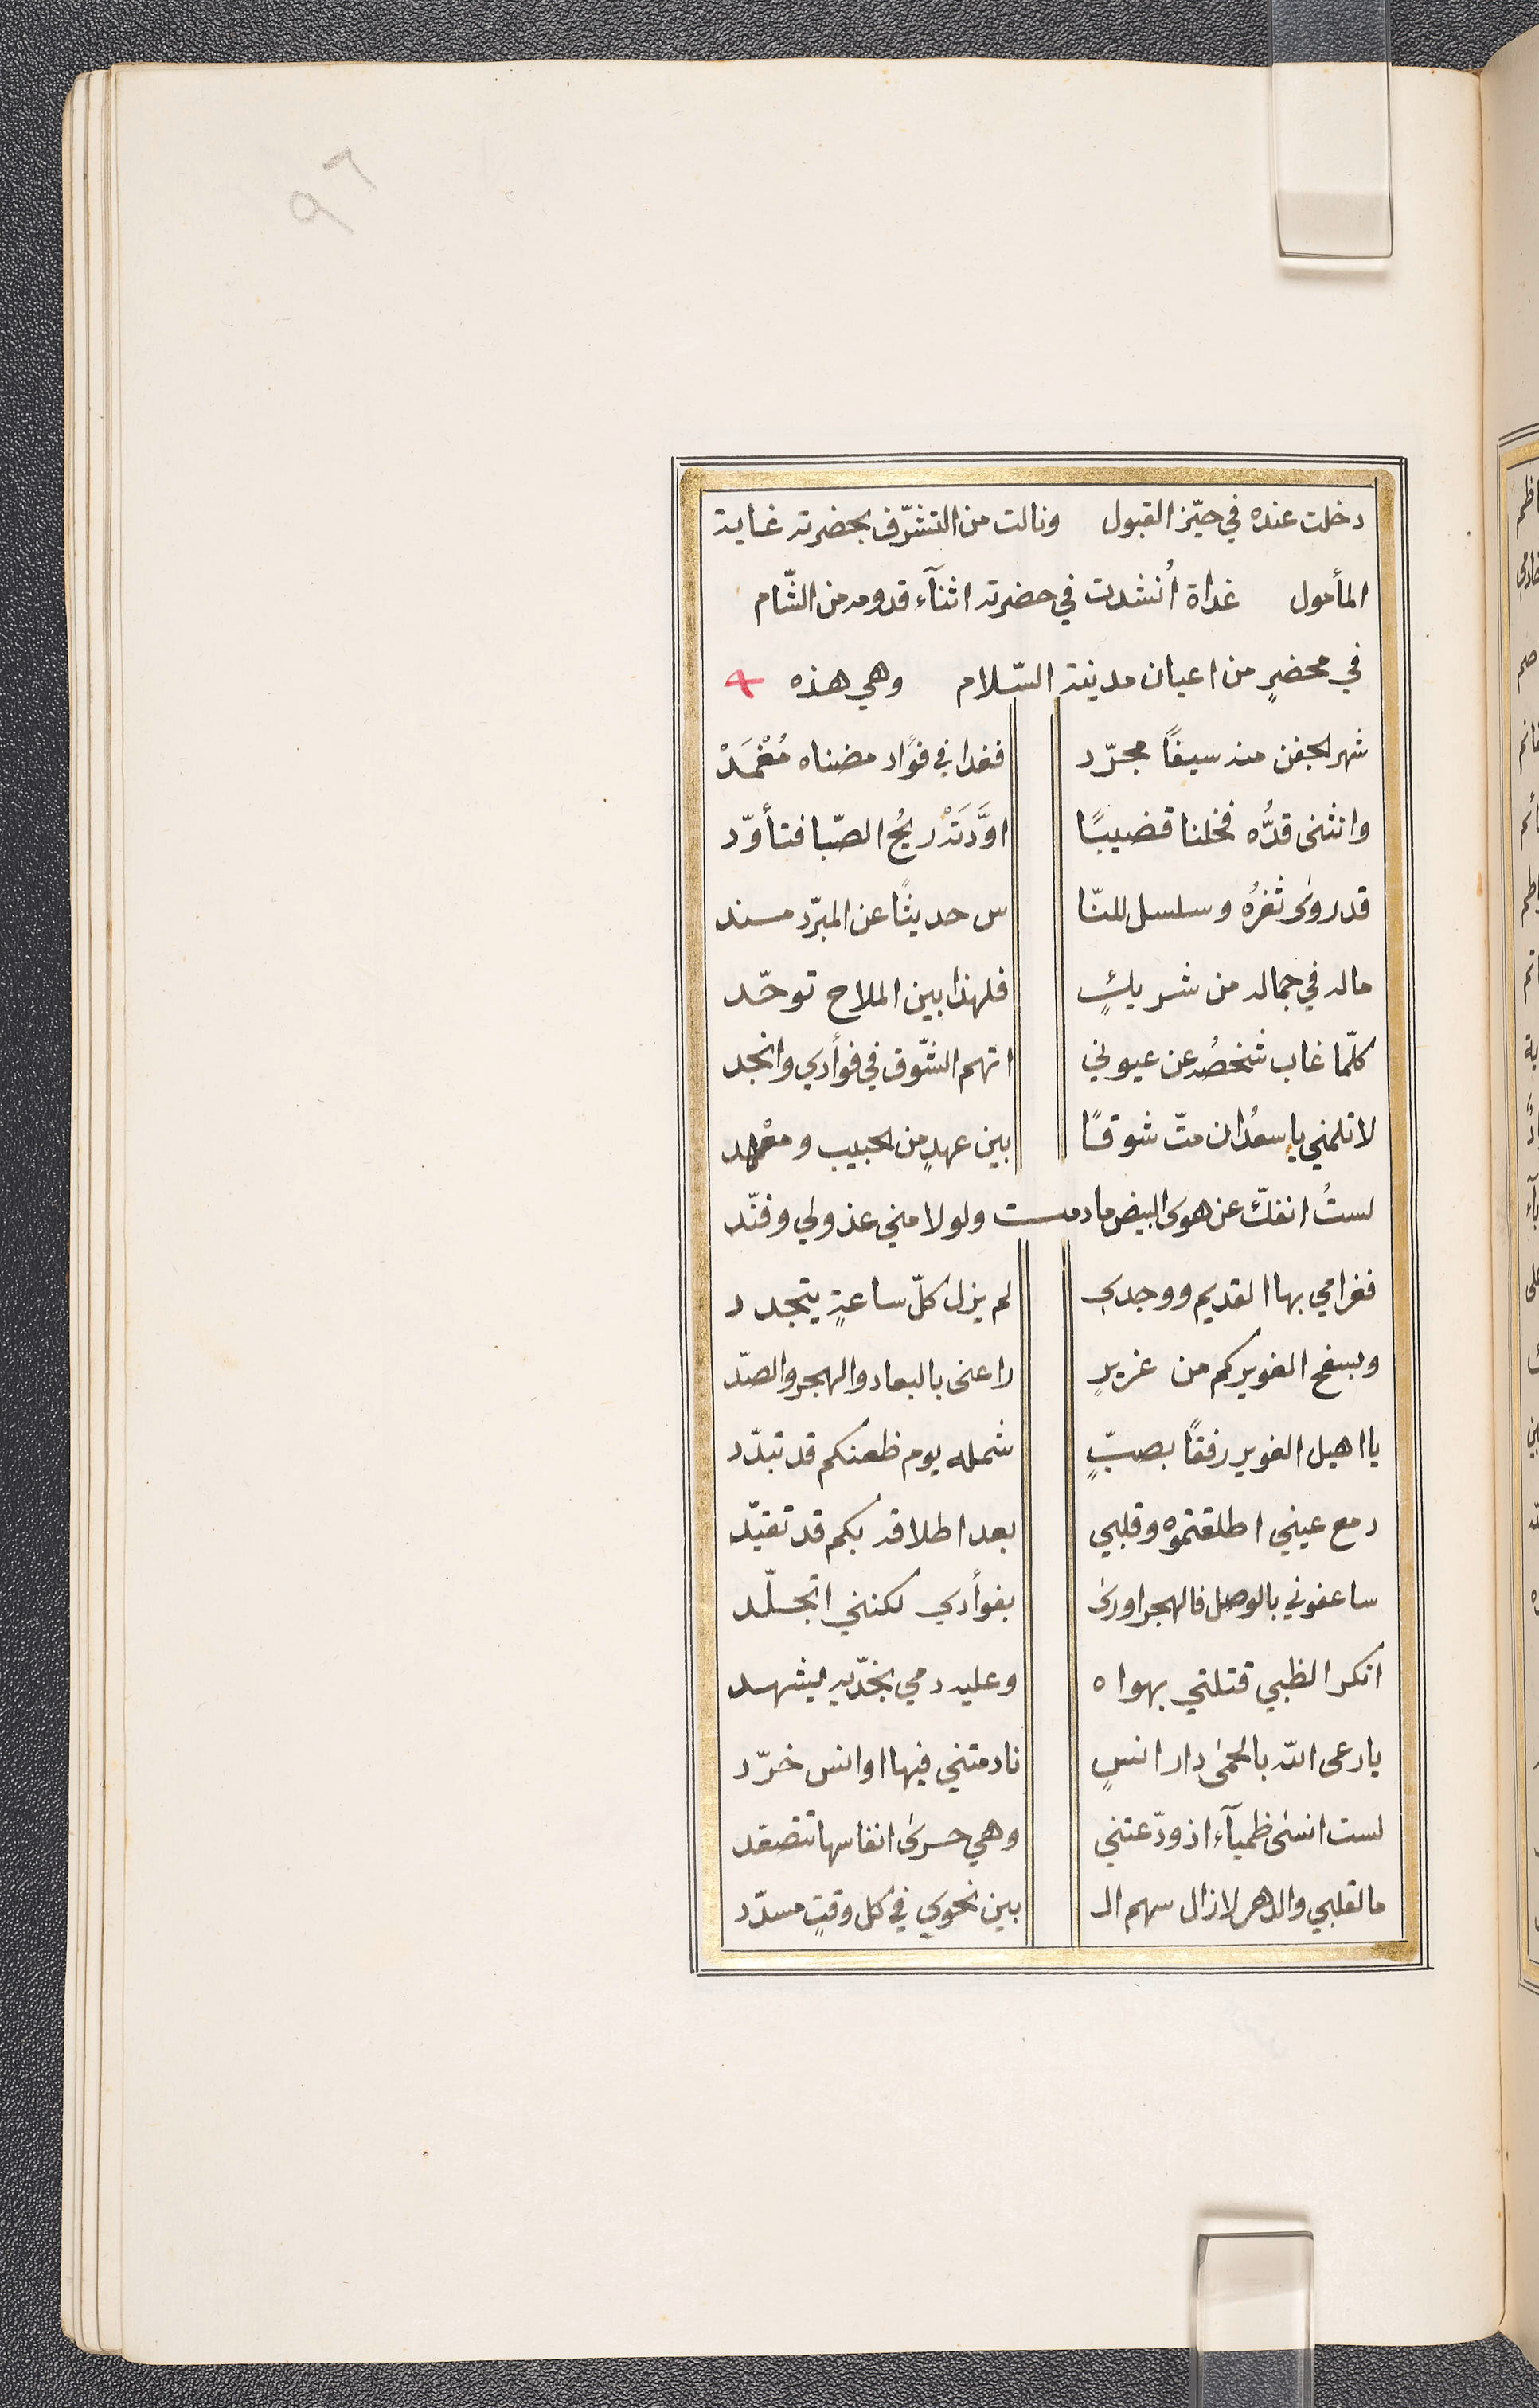 ٩٦
دخلت عنده في حيّز القبول ونالت من التشرّف بحضرته غاية
المأمول غداة أُنشدت في حضرته اثنآء قدومه من الشّام
في محضرٍ من اعيان مدينة السّلام وهي هذه
شهر الجفن منه سيفًا مجرّد فغدا في فؤاد مضناه مُغْمَدْ
وانثنى قدُّه فخلنا قضيبًا اوَّدَتَهْ ريحُ الصّبا فتأوّد
قد روى ثغرُه وسلسل للنّا س حديثًا عن المبرّد مسند
ماله في جماله من شريكٍ فلهذا بين الملاح توحّد
كلّما غاب شخصُه عن عيوني اتهم الشّوق في فوأدي وانجد
لا تلمني يا سعدُ ان متّ شوقًا بين عهدٍ من الحبيب ومعْهد
لستُ انفكّ عن هوى البيض ما دمت ولو لا مني عذولي وفنّد
فغرامي بها القديم ووجدي لم يزل كلّ ساعةٍ يتجدد
وبسفح الغوير كم من غريرٍ راعنى بالبعاد والهجر والصدّ
يا اهيل الغوير رفقًا بصبٍّ شمله يوم ظعنكم قد تبدّد
دمع عيني اطلقتموه وقلبي بعد اطلاقه بكم قد تقيّد
ساعفوني بالوصل فالهجر اورى بفوأدي لكنني اتجلّد
انكر الظبي قتلتي بهواه وعليه دمي بخدّيه يشهد
يا رعى الله بالحمى دار انسٍ نادمتني فيها اوانس خرّد
لست انسى ظميآء اذ ودّعتني وهي حرى انفاسها تتصعّد
ما لقلبي والدهر لازال سهم الـ بين نحوي في كل وقتٍ مسدّد